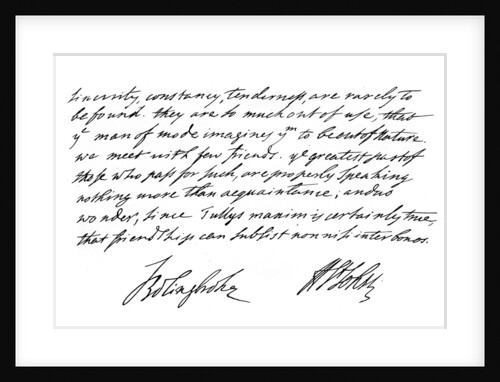 sincerity, constancy, tenderness, are rarely to
be found. they are so much out of use, that
yᵉ man of mode imagines yᵐ to be out of nature.
we meet with few friends. yᵉ greatest part of
those who pass for such, are properly speaking
nothing more than acquaintance; and no
wonder, since Tullys maxim is certainly true,
that friendship can subsist non nisi inter bonos.
Bolingbroke H St John